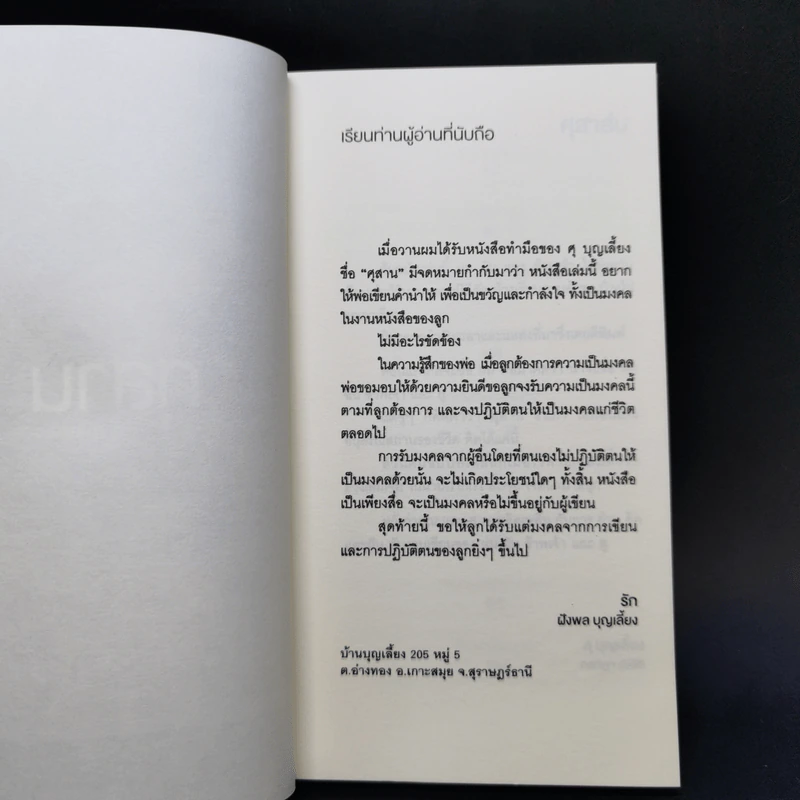 เรียนท่านผู้อ่านที่นับถือ
เมื่อวานผมได้รับหนังสือทำมือของ ศุ บุญเลี้ยง
ชื่อ "ศุสาน" มีจดหมายกำกับมาว่า หนังสือเล่มนี้ อยาก
ให้พ่อเขียนคำนำให้ เพื่อเป็นขวัญและกำลังใจ ทั้งเป็นมงคล
ในงานหนังสือของลูก
ไม่มีอะไรขัดข้อง
ในความรู้สึกของพ่อ เมื่อลูกต้องการความเป็นมงคล
พ่อขอมอบให้ด้วยความยินดีขอลูกจงรับความเป็นมงคลนี้
ตามที่ลูกต้องการ และจงปฏิบัติตนให้เป็นมงคลแก่ชีวิต
ตลอดไป
การรับมงคลจากผู้อื่นโดยที่ตนเองไม่ปฏิบัติตนให้
เป็นมงคลด้วยนั้น จะไม่เกิดประโยชน์ใดๆ ทั้งสิ้น หนังสือ
เป็นเพียงสื่อ จะเป็นมงคลหรือไม่ขึ้นอยู่กับผู้เขียน
สุดท้ายนี้ ขอให้ลูกได้รับแต่มงคลจากการเขียน
และการปฏิบัติตนของลูกยิ่งๆ ขึ้นไป
รัก
ฝังพล บุญเลี้ยง
บ้านบุญเลี้ยง 205 หมู่ 5
ต.อ่างทอง อ.เกาะสมุย จ.สุราษฎร์ธานี